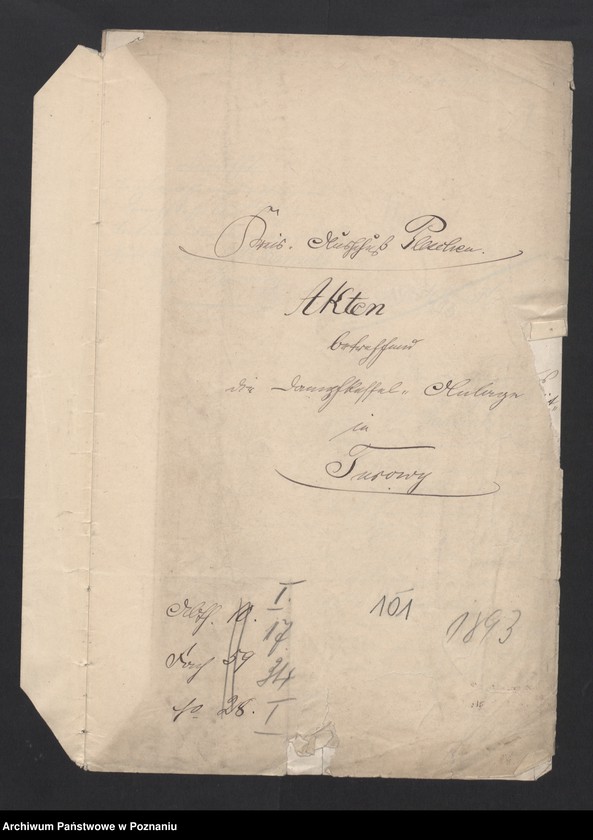 Kreis-Ausschuß Pleschen.
Akten
betreffend
die Dampfkessel-Anlage
in
Turowy
I.
Abth. 10. 101
17 1893
Fach 59
34
No 28. I
Archiwum Państwowe w Poznaniu